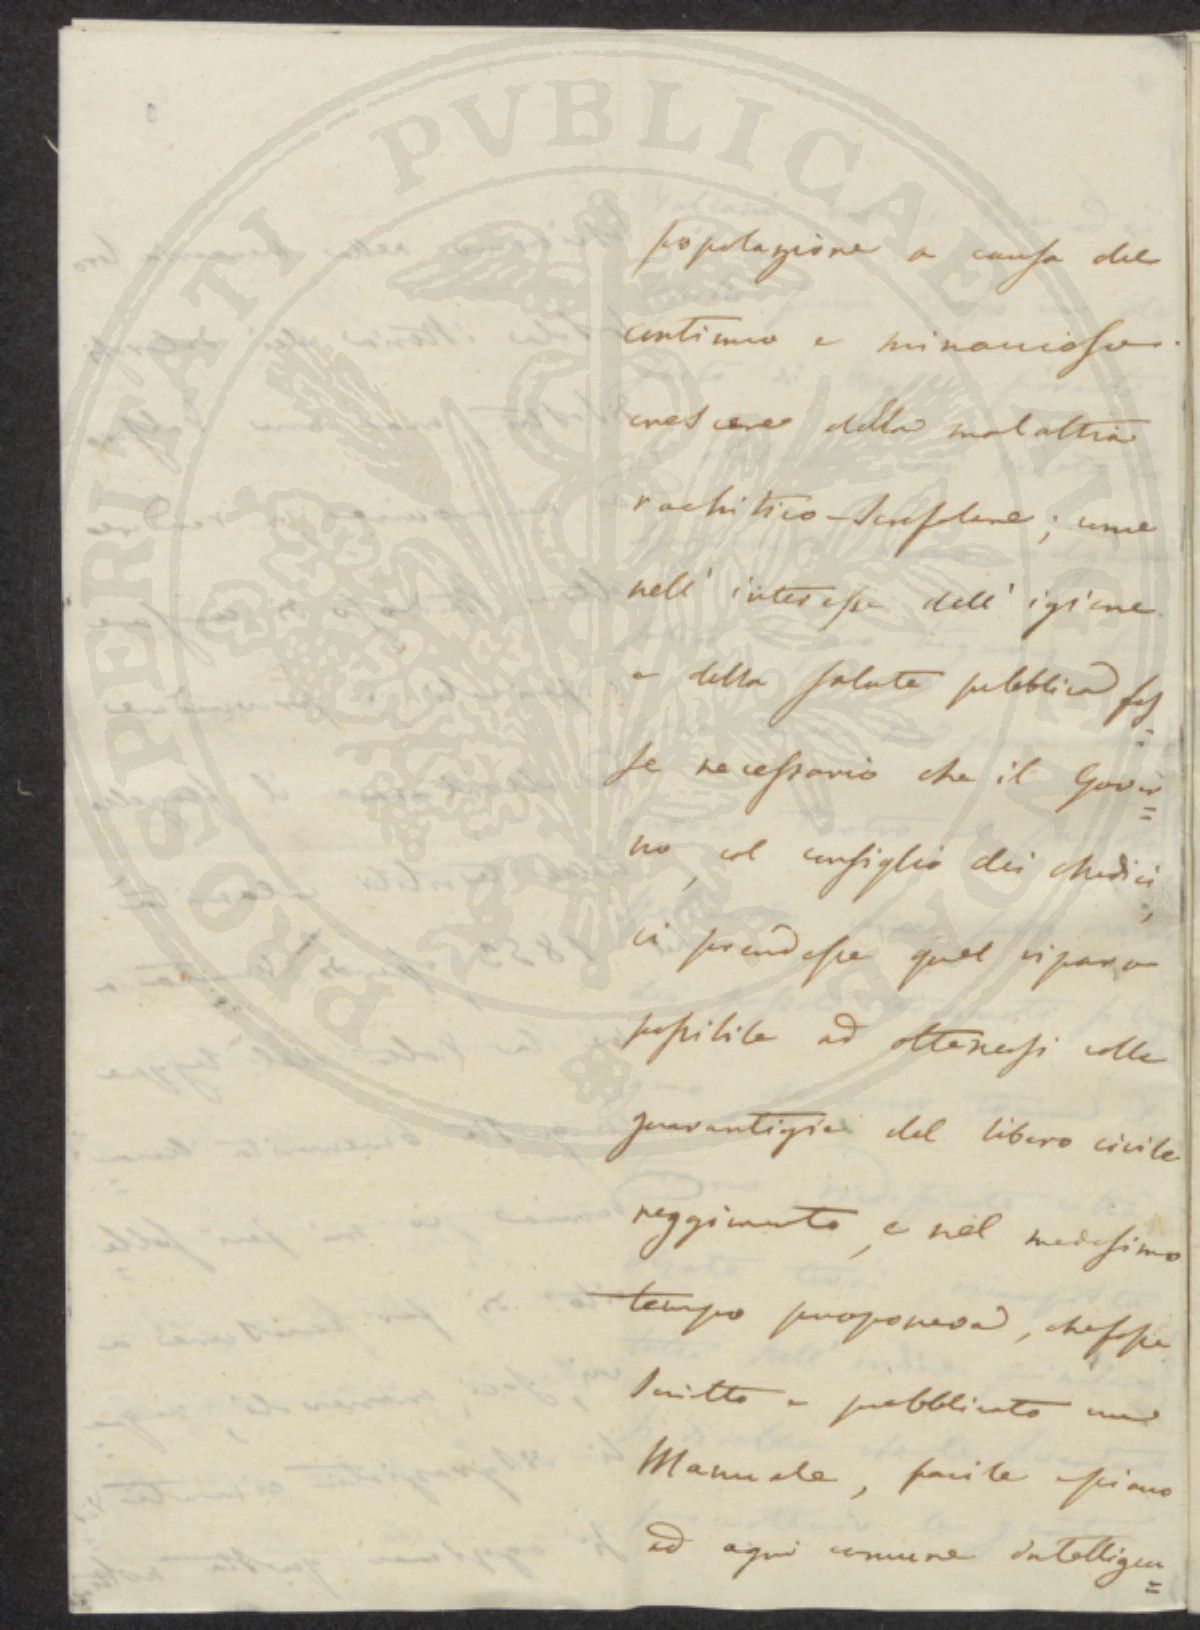 PROSPERITATI PVBLICAE AVGENDAE
popolazione a causa del
continuo e minaccioso
crescere della malattia
rachitico-scrofolare; come
nell' interesse dell' igiene
e della salute pubblica fos=
se necessario che il Gover=
no, col consiglio dei Medici,
ci prendesse quel riparo
possibile ad ottenersi colle
guarantigie del libero civile
reggimento, e nel medesimo
tempo proponeva, che fosse
scritto e pubblicato un
Manuale, facile e piano
ad ogni comune intelligen=